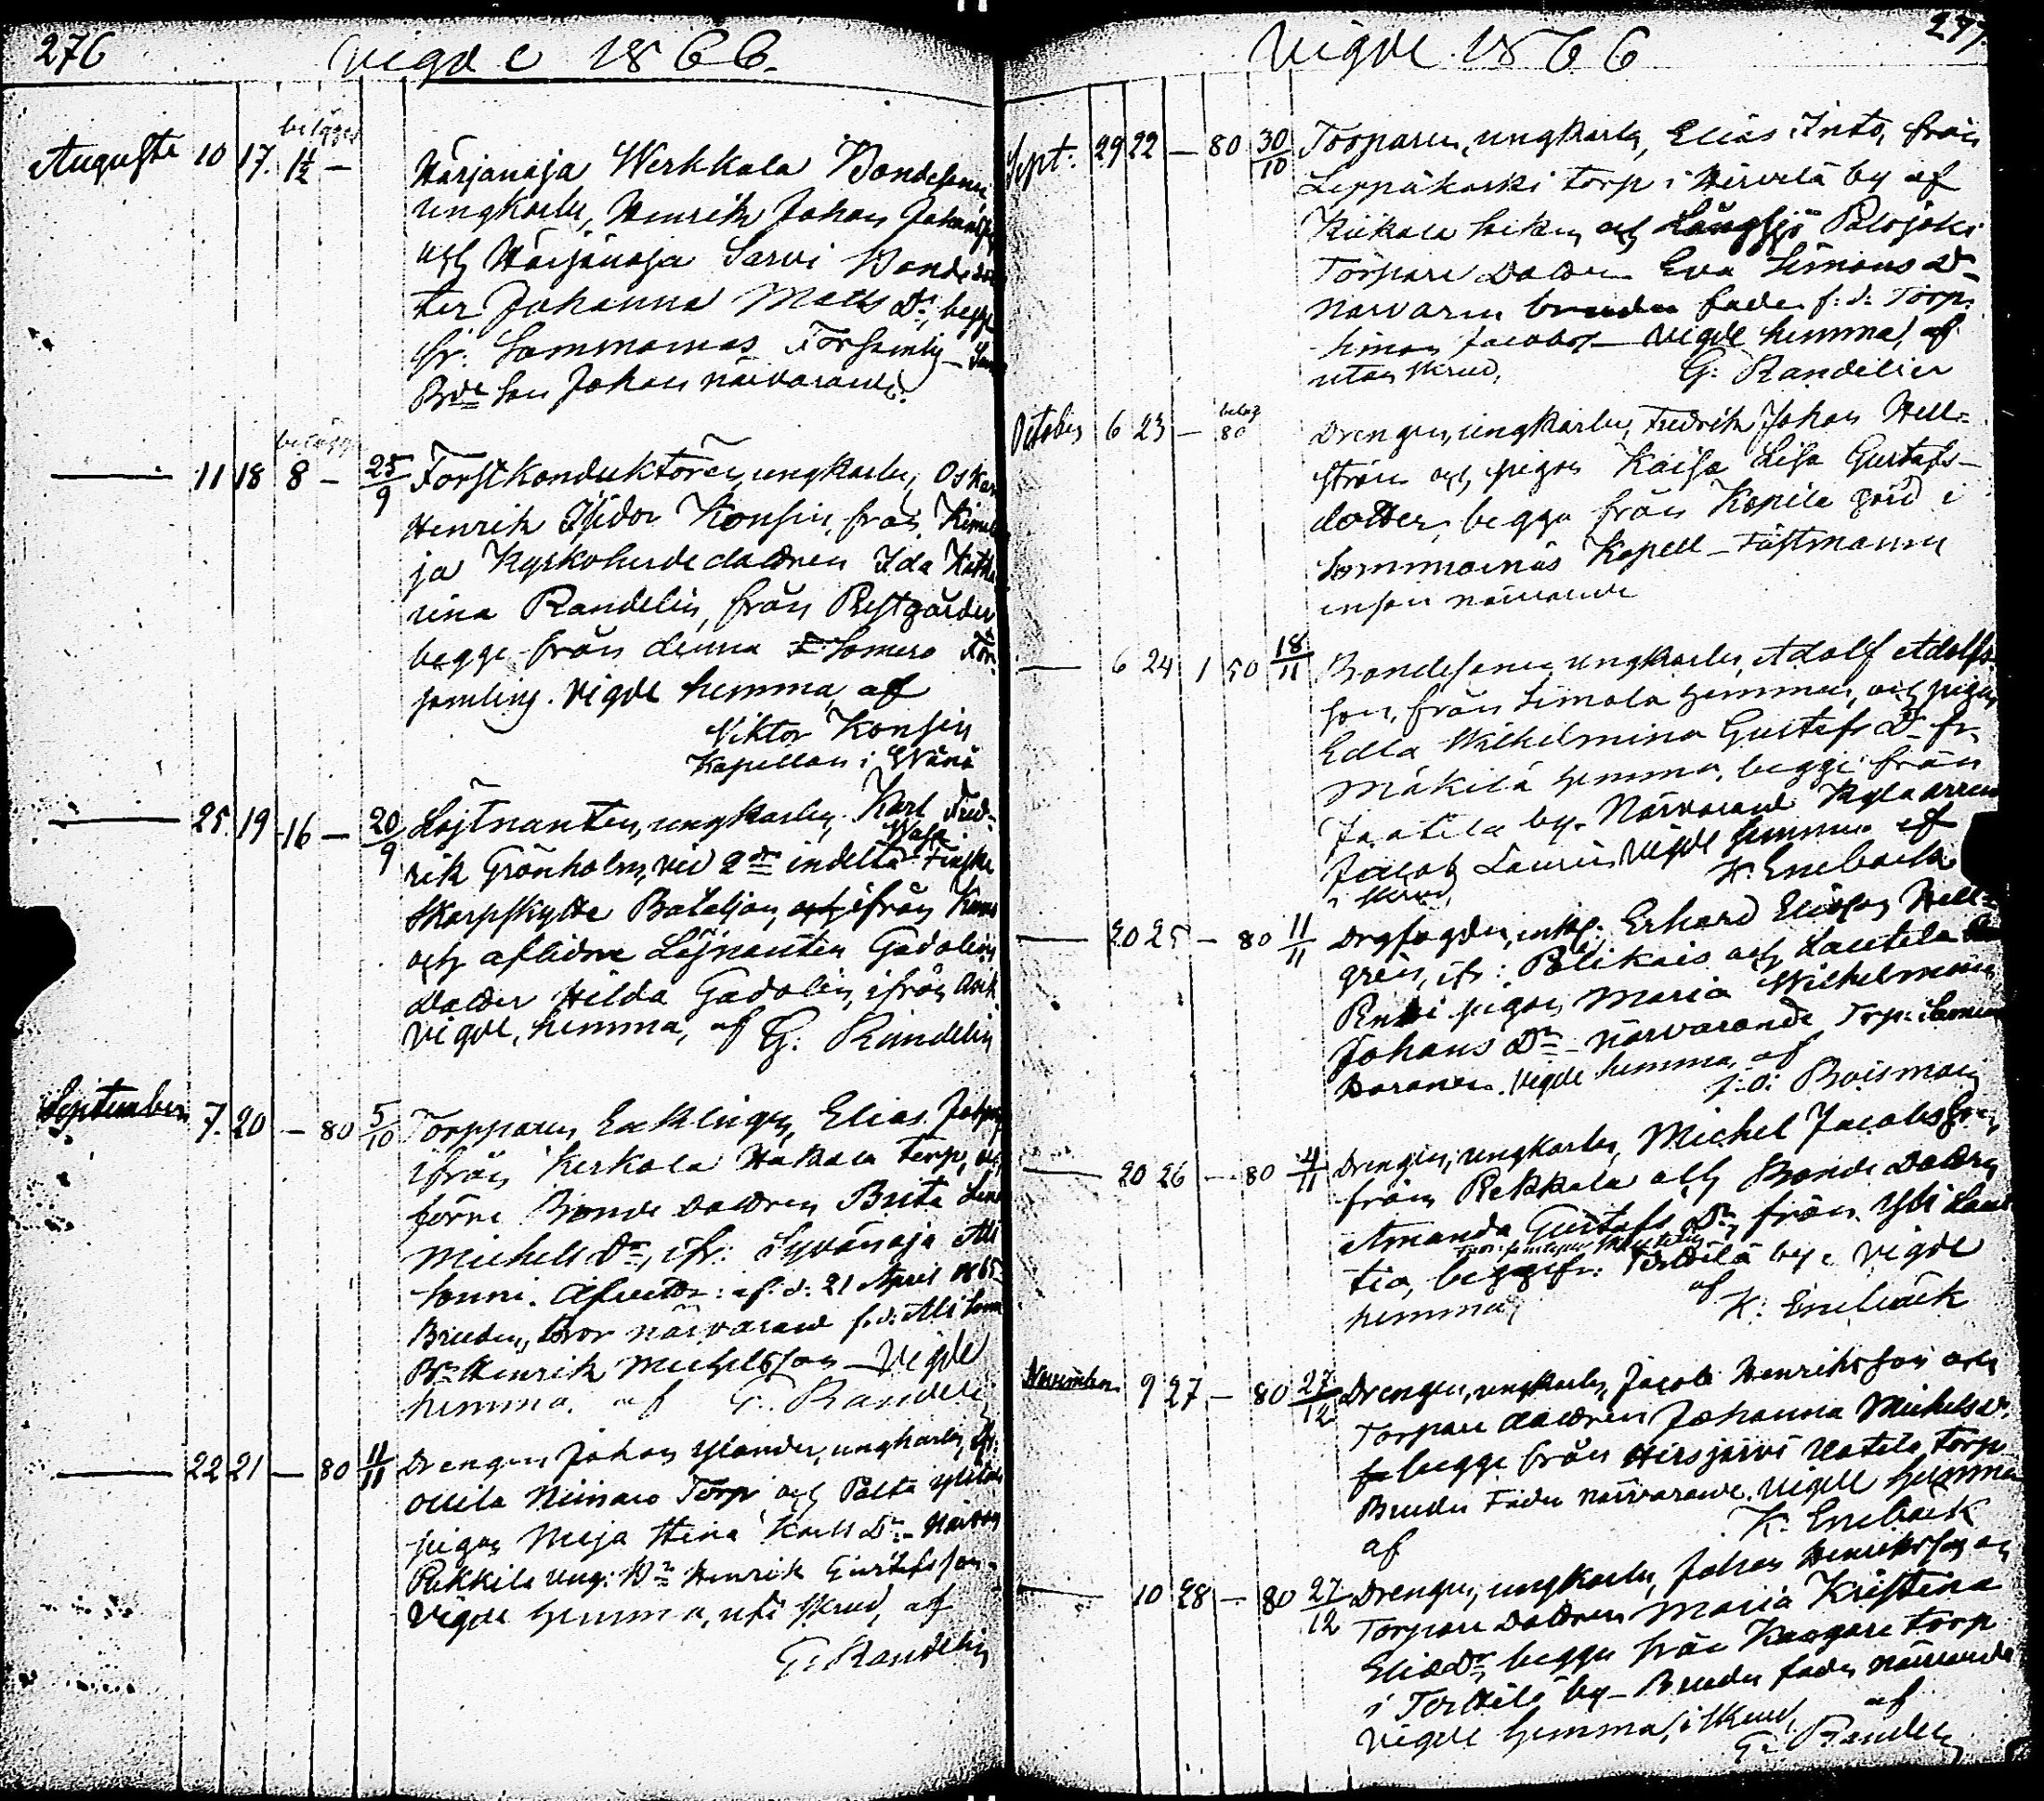 276 vigde 1866.
Augusti 10 17. 1½ — Härjanoja Werkkala Bondesonen,
ungkarlen, Henrik Johan
och Härjänoja Sarvi
ter Johanna Matts Dr, begge
fr: Sommarnäs Församling —
Bde son Johan närvarande.
— 11 18 8 — 25/9 Forstkonduktören, ungkarlen, Oskar
Henrik Isidor Konsin, från
ja Kyrkoherdedottren Ida Katha
rina Randelin, från Prestgården
begge från denna Somero För
samling. Vigde hemma, af
Viktor Konsin
Kapellan i
— 25. 19 16 — 20/9 Löjtnanten, ungkarlen, Karl Fred-
Wasa
rik Grönholm, vid 2dra indelta Finska
Skarpskytte Bataljon, ifrån
och aflidne Löjtnanten Gadolins
Dotter Hilda Gadolin, ifrån
Vigde, hemma, af G. Randelin
September 7. 20 — 80 5/10 Torpparen Enklingen, Elias
ifrån Kerkola Hakala torp, och
förre Bonde Dottren Brita Lena
Michels Dr, ifr: Syvänoja Ali
Sonni. af d: 21 April 1865
Bruden, bror närvarand f. d. Ali
Bn Henrik Michelsson — Vigde
hemma. af G. Randelin
— 22 21 — 80 11/11 Drengen Johan Ylander, ungkarlen,
Ollila Niinare Torp och Palta
pigan Maja Stina Karls Dr —
Pekkila ung: Bn Henrik Gustafsson —
Vigde hemma, uti skrud, af
G: Randelin
Vigde 1866 277.
Sept: 29 22 — 80 30/10 Torparen, ungkarlen, Elias Into, från
Leppäkoski torp i Hirvelä by af
Kiikala Socken och Långsjö Palojoki
Torpare Dottren Eva Simons D—
Närvaren brudens fader f: d: Torp:
Simon Jacobss— Vigde hemma, af
utan skrud, G: Randelin
October 6 23 — 80 Drengen, ungkarlen, Fredrik Johan Hell-
ström och pigan Kaisa Lisa Gustafs-
dotter, begge från Kopila gård i
Sommarnäs Kapell — Fästmannen
ensam närvarande
— 6 24 1 50 18/11 Bondesonen, ungkarlen, Adolf Adolfs-
son, från Simola hemman, och pigan
Edla Wilhelmina Gustafs D— fr.
Mäkilä hemman, begge från
Jaatila by. Närvarand
Jacob Laurén Vigde hemma af
i skrud, K. Eneback
— 20 25 — 80 11/11 Erhard Eliasson Hell-
grén, ifr: och Lautela
pigan Maria Wilhelmina
Johans Dr — närvarande Torp:
Vigde hemma, af
J: O: Boisman
— 20 26 — 80 4/11 Drengen, ungkarlen, Michel Jacobsson,
från Pekkala och Bonde Dottren
Amanda Gustafs Dr, från Yli
tia, begge fr: Terttilä by. Vigde
hemma, af K: Enebäck
November 9 27 — 80 27/12 Drengen, ungkarlen, Jacob Henriksson och
Torpare dottren Johanna Michels dr.
begge från Hirsjärvi Uotila torp
Brudens Fader närvarande. Vigde hemma
af K. Eneback
— 10 28 — 80 27/12 Drengen, ungkarlen, Johan Henriksson och
Torpare Dottren Maria Kristina
Elias Dr, begge från Kangare torp
i Terttilä by — Brudens fader närvarande
Vigde hemma, i skrud, af
G. Randelin